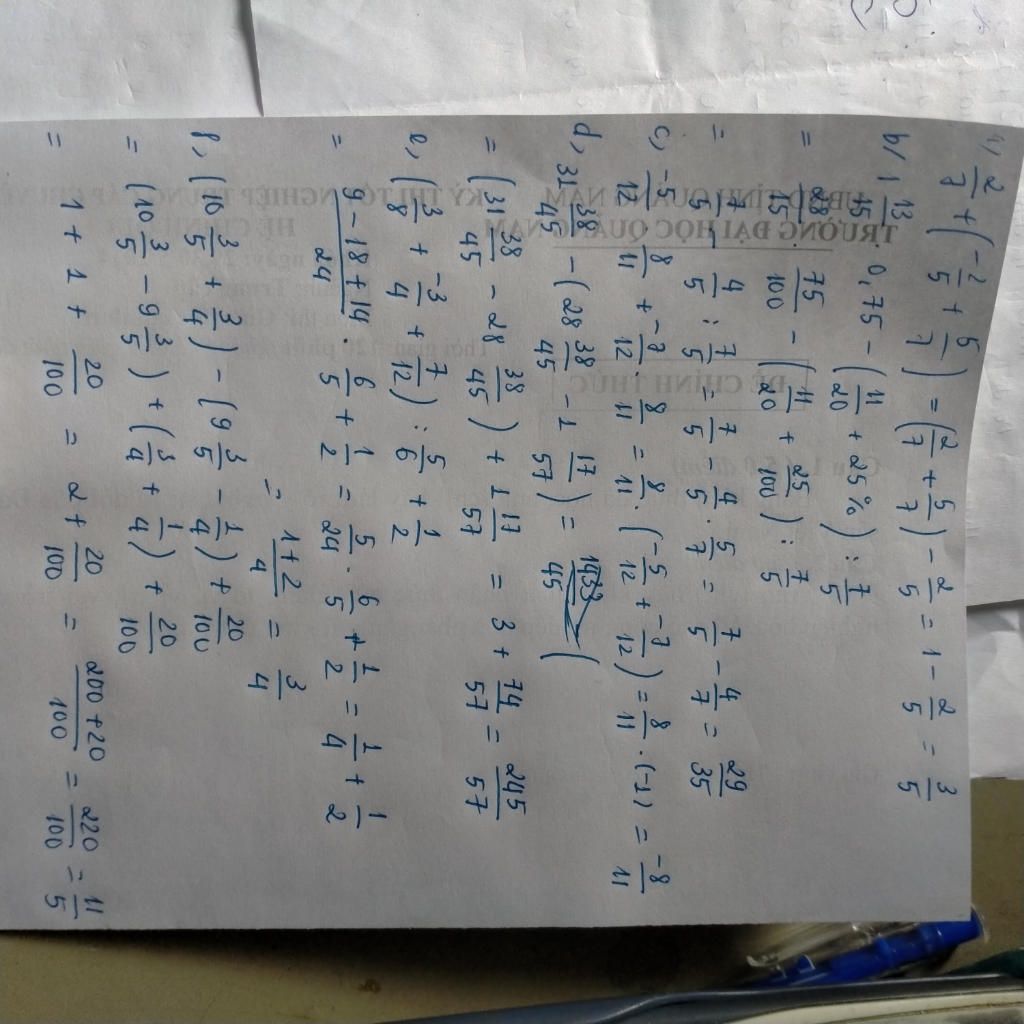 a, 2/7 + (-2/5 + 5/7) = (2/7 + 5/7) - 2/5 = 1 - 2/5 = 3/5
b/ 1 13/15 . 0,75 - (11/20 + 25%) : 7/5
= 28/15 . 75/100 - (11/20 + 25/100) : 7/5
= 7/5 - 4/5 : 7/5 = 7/5 - 4/5 . 5/7 = 7/5 - 4/7 = 29/35
c, -5/12 . 8/11 + -7/12 . 8/11 = 8/11 . (-5/12 + -7/12) = 8/11 . (-1) = -8/11
d, 31 38/45 - (28 38/45 - 1 17/57) =
= (31 38/45 - 28 38/45) + 1 17/57 = 3 + 74/57 = 245/57
e, (3/8 + -3/4 + 7/12) : 5/6 + 1/2
= 9 - 18 + 14/24 . 6/5 + 1/2 = 5/24 . 6/5 + 1/2 = 1/4 + 1/2
= 1+2/4 = 3/4
f, (10 3/5 + 3/4) - (9 3/5 - 1/4) + 20/100
= (10 3/5 - 9 3/5) + (3/4 + 1/4) + 20/100
= 1 + 1 + 20/100 = 2 + 20/100 = 200 + 20/100 = 220/100 = 11/5